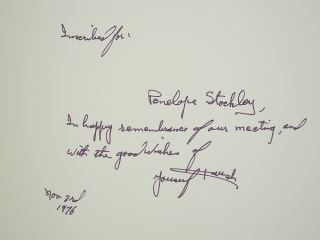 Inscribed for:
Penelope Stockley,
In happy remembrance of our meeting, and
with the good wishes of
Yousuf Karsh
Nov 23rd
1976